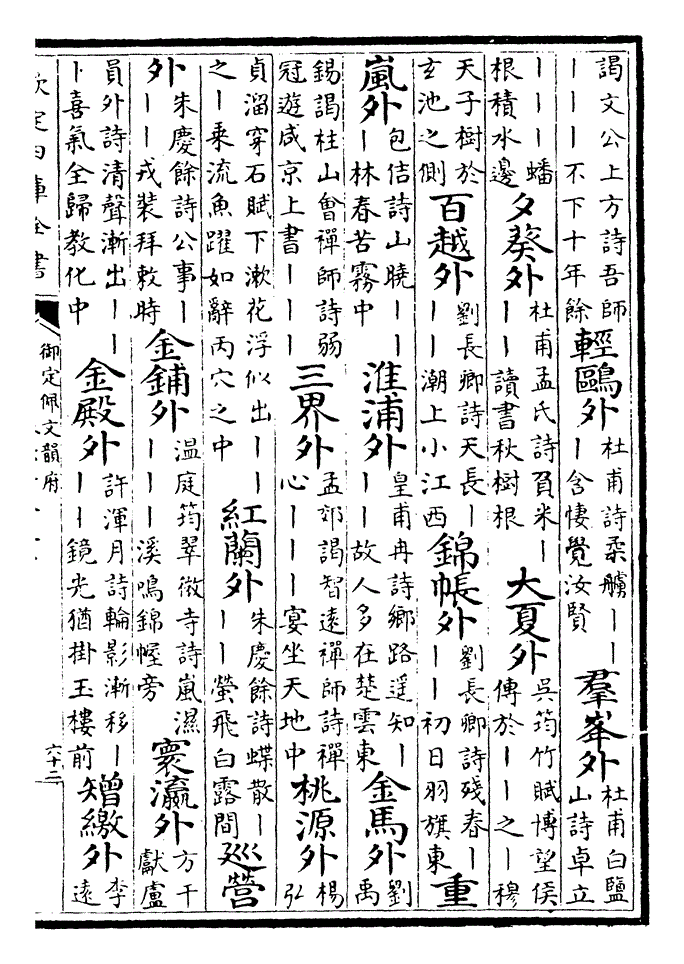 謁文公上方詩吾師丨丨丨不下十年餘輕鷗外杜甫詩柔艣丨丨丨含悽覺汝賢羣峯外杜甫白鹽山詩卓立
丨丨丨蟠根積水邊夕葵外杜甫孟氏詩負米丨丨丨讀書秋樹根大夏外吳筠竹賦博望侯傳於丨丨之丨穆
天子樹於玄池之側百越外劉長卿詩天長丨丨丨潮上小江西錦帳外劉長卿詩殘春丨丨丨初日羽旗東重
嵐外包佶詩山曉丨丨丨林春苦霧中淮浦外皇甫冉詩鄉路遥知丨丨丨故人多在楚雲東金馬外劉禹
錫謁柱山會禪師詩弱冠遊咸京上書丨丨丨三界外孟郊謁智遠禪師詩禪心丨丨丨宴坐天地中桃源外楊弘
貞溜穿石賦下漱花浮似出丨丨之丨乘流魚躍如辭丙穴之中紅蘭外朱慶餘詩蝶散丨丨丨螢飛白露間巡營
外朱慶餘詩公事丨丨丨戎裝拜敕時金鋪外温庭筠翠微寺詩嵐濕丨丨丨溪鳴錦幄旁寰瀛外方干獻盧
員外詩清聲漸出丨丨丨喜氣全歸教化中金殿外許渾月詩輪影漸移丨丨丨鏡光猶掛玉樓前矰繳外李遠
欽定四庫全書
御定佩文韻府
六十二